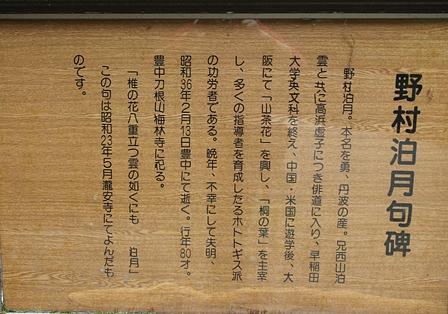 野村泊月句碑
野村泊月。本名を勇、丹波の産。兄西山泊
雲と共に高浜虚子につき俳道に入り、早稲田
大学英文科を終え、中国・米国に遊学後、大
阪にて「山茶花」を興し、「桐の葉」を主宰
し、多くの指導者を育成したるホトトギス派
の功労者である。晩年、不幸にして失明、
昭和36年2月13日豊中にて逝く。行年80才。
豊中刀根山梅林寺に祀る。
「椎の花八重立つ雲の如くにも　泊月」
この句は昭和23年5月瀧安寺にてよんだも
のです。